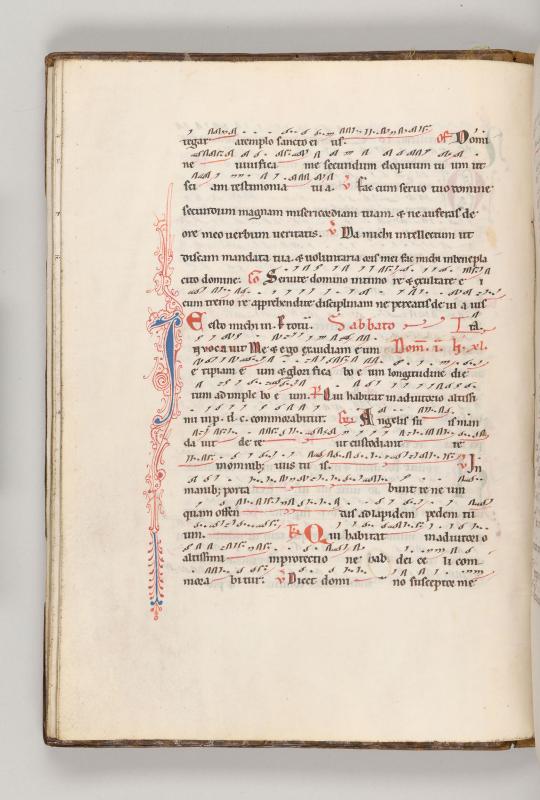 tegar atemplo sancto ei us. of Domi
ne uiuifica me secundum eloquium tu um ut
sci am testimonia tu a. ℣ fac cum seruo tuo domine
secundum magnam misericordiam tuam. & ne auferas de
ore meo uerbum ueritatis. ℣ Da michi intellectum ut
discam mandata tua. & uoluntaria oris mei fac michi
cito domine. Co Seruite domino in timo re & exultate e i
cum tremo re apprehendite disciplinam ne pereatis de ui a ius
Esto michi in. totu. Sabbato
Inuoca uit Me & ego exaudiam e um Dom. i.
e ripiam e um & glori fica bo e um longitudine die
rum adimple bo e um. Ps Qui habitat in adiutorio altissi
mi in p. d. c. commorabitur. Angelis su is man
da uit de te ut custodiant te
in omnib; uiis tu is. ℣ In
manib; porta bunt te ne um
quam offen das ad lapidem pedem tu
um. Qui habitat in adiutori o
altissimi in protectio ne dei ce li com
mora bitur. ℣ Dicet domi no susceptor me